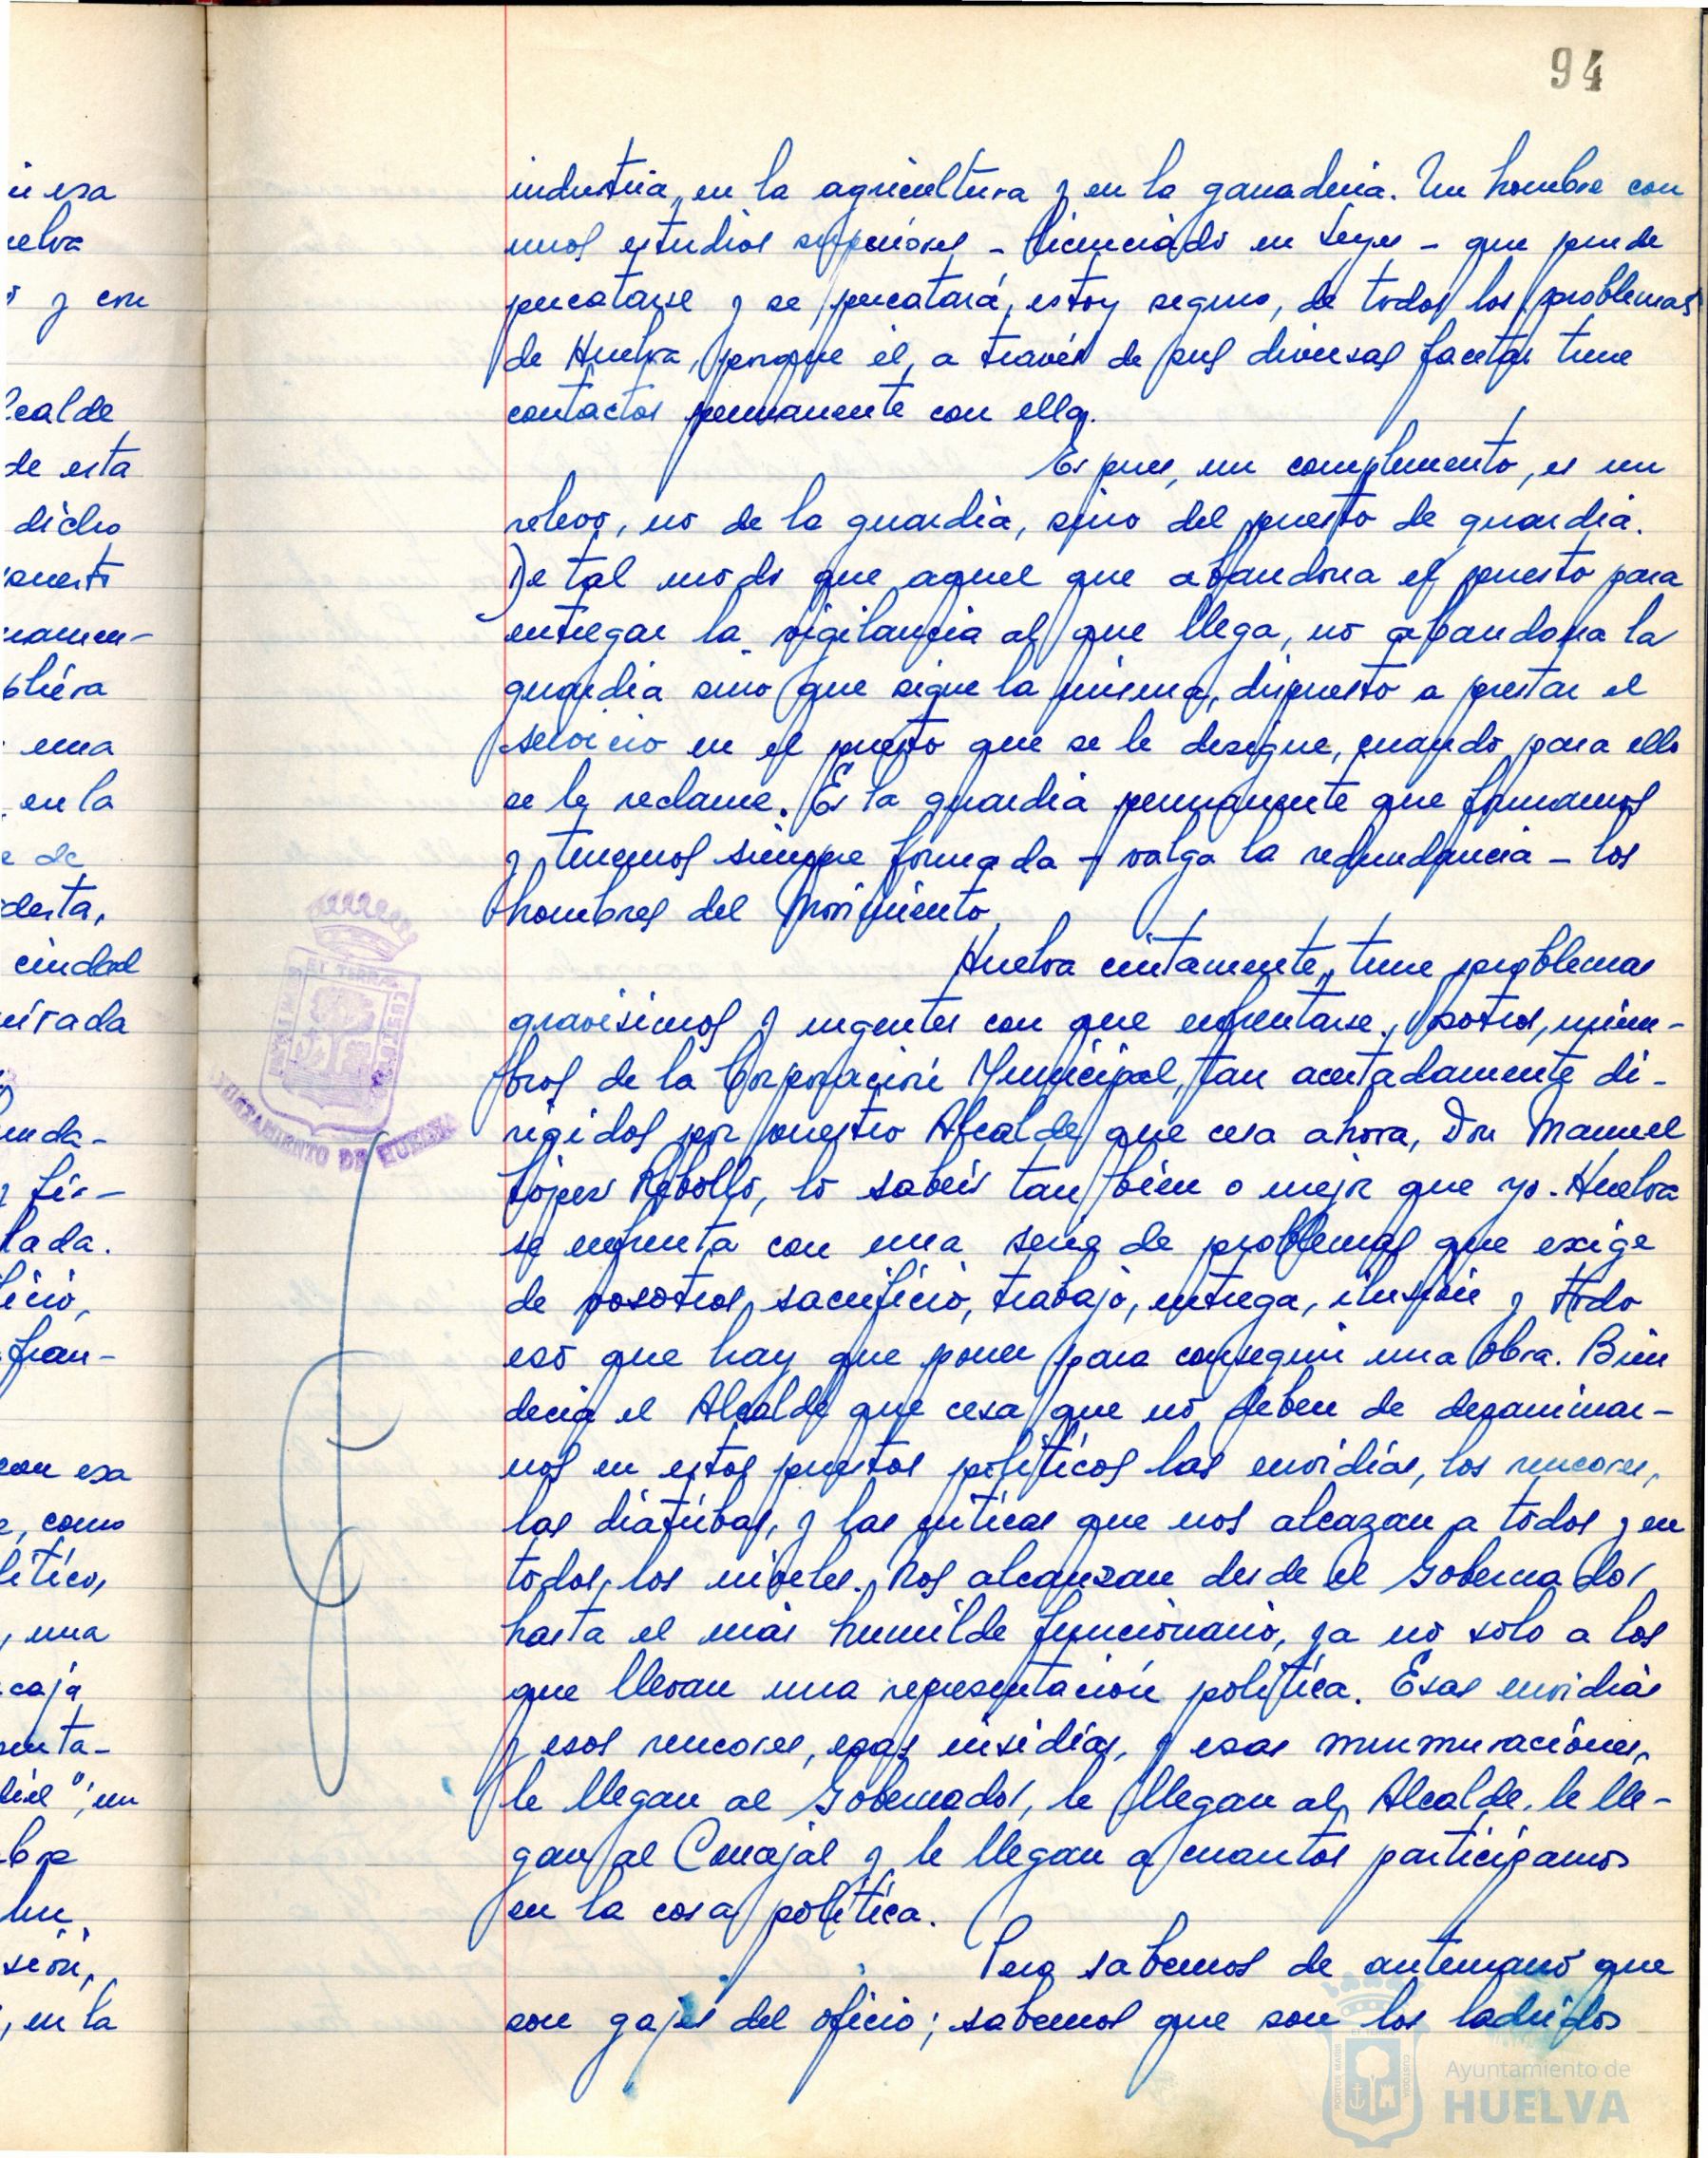 94
industria, en la agricultura y en la ganaderia. Un hombre con
unos estudios superiores - licenciado en Leyes - que puede
percatarse y se percatará, estoy seguro, de todos los problemas
de Huelva, porque él, a través de sus diversas facetas tiene
contactos permanente con ella.
Es pues, un complemento, es un
relevo, no de la guardia, sino del puesto de guardia.
De tal modo que aquel que abandona el puesto para
entregar la vigilancia al que llega, no abandona la
guardia sino que sigue la misma, dispuesto a prestar el
servicio en el puesto que se le designe, cuando para ello
se le reclame. Es la guardia permanente que formamos
y tenemos siempre formada - valga la redundancia - los
hombres del Movimiento.
Huelva ciertamente, tiene problemas
gravisimos y urgentes con que enfrentarse. Vosotros, miem-
bros de la Corporación Municipal, tan acertadamente di-
rigidos por vuestro Alcalde que cesa ahora, Don Manuel
López Rebollo, lo sabeis tan bien o mejor que yo. Huelva
se enfrenta con una serie de problemas que exige
de vosotros, sacrificio, trabajo, entrega, ilusión y todo
eso que hay que poner para conseguir una obra. Bien
decia el Alcalde que cesa que no deben de desanimar-
nos en estos puestos políticos las envidias, los rencores,
las diatribas, y las criticas que nos alcazan a todos y en
todos los niveles. Nos alcanzan desde el Gobernador
hasta el más humilde funcionario, ya no solo a los
que llevan una representación política. Esas envidias
y esos rencores, esas insidias, y esas murmuraciones,
le llegan al Gobernador, le llegan al Alcalde, le lle-
gan al Concejal y le llegan a cuantos participamos
en la cosa política.
Pero sabemos de antemano que
son gajes del oficio; sabemos que son los ladridos
AYUNTAMIENTO DE HUELVA
Ayuntamiento de
HUELVA